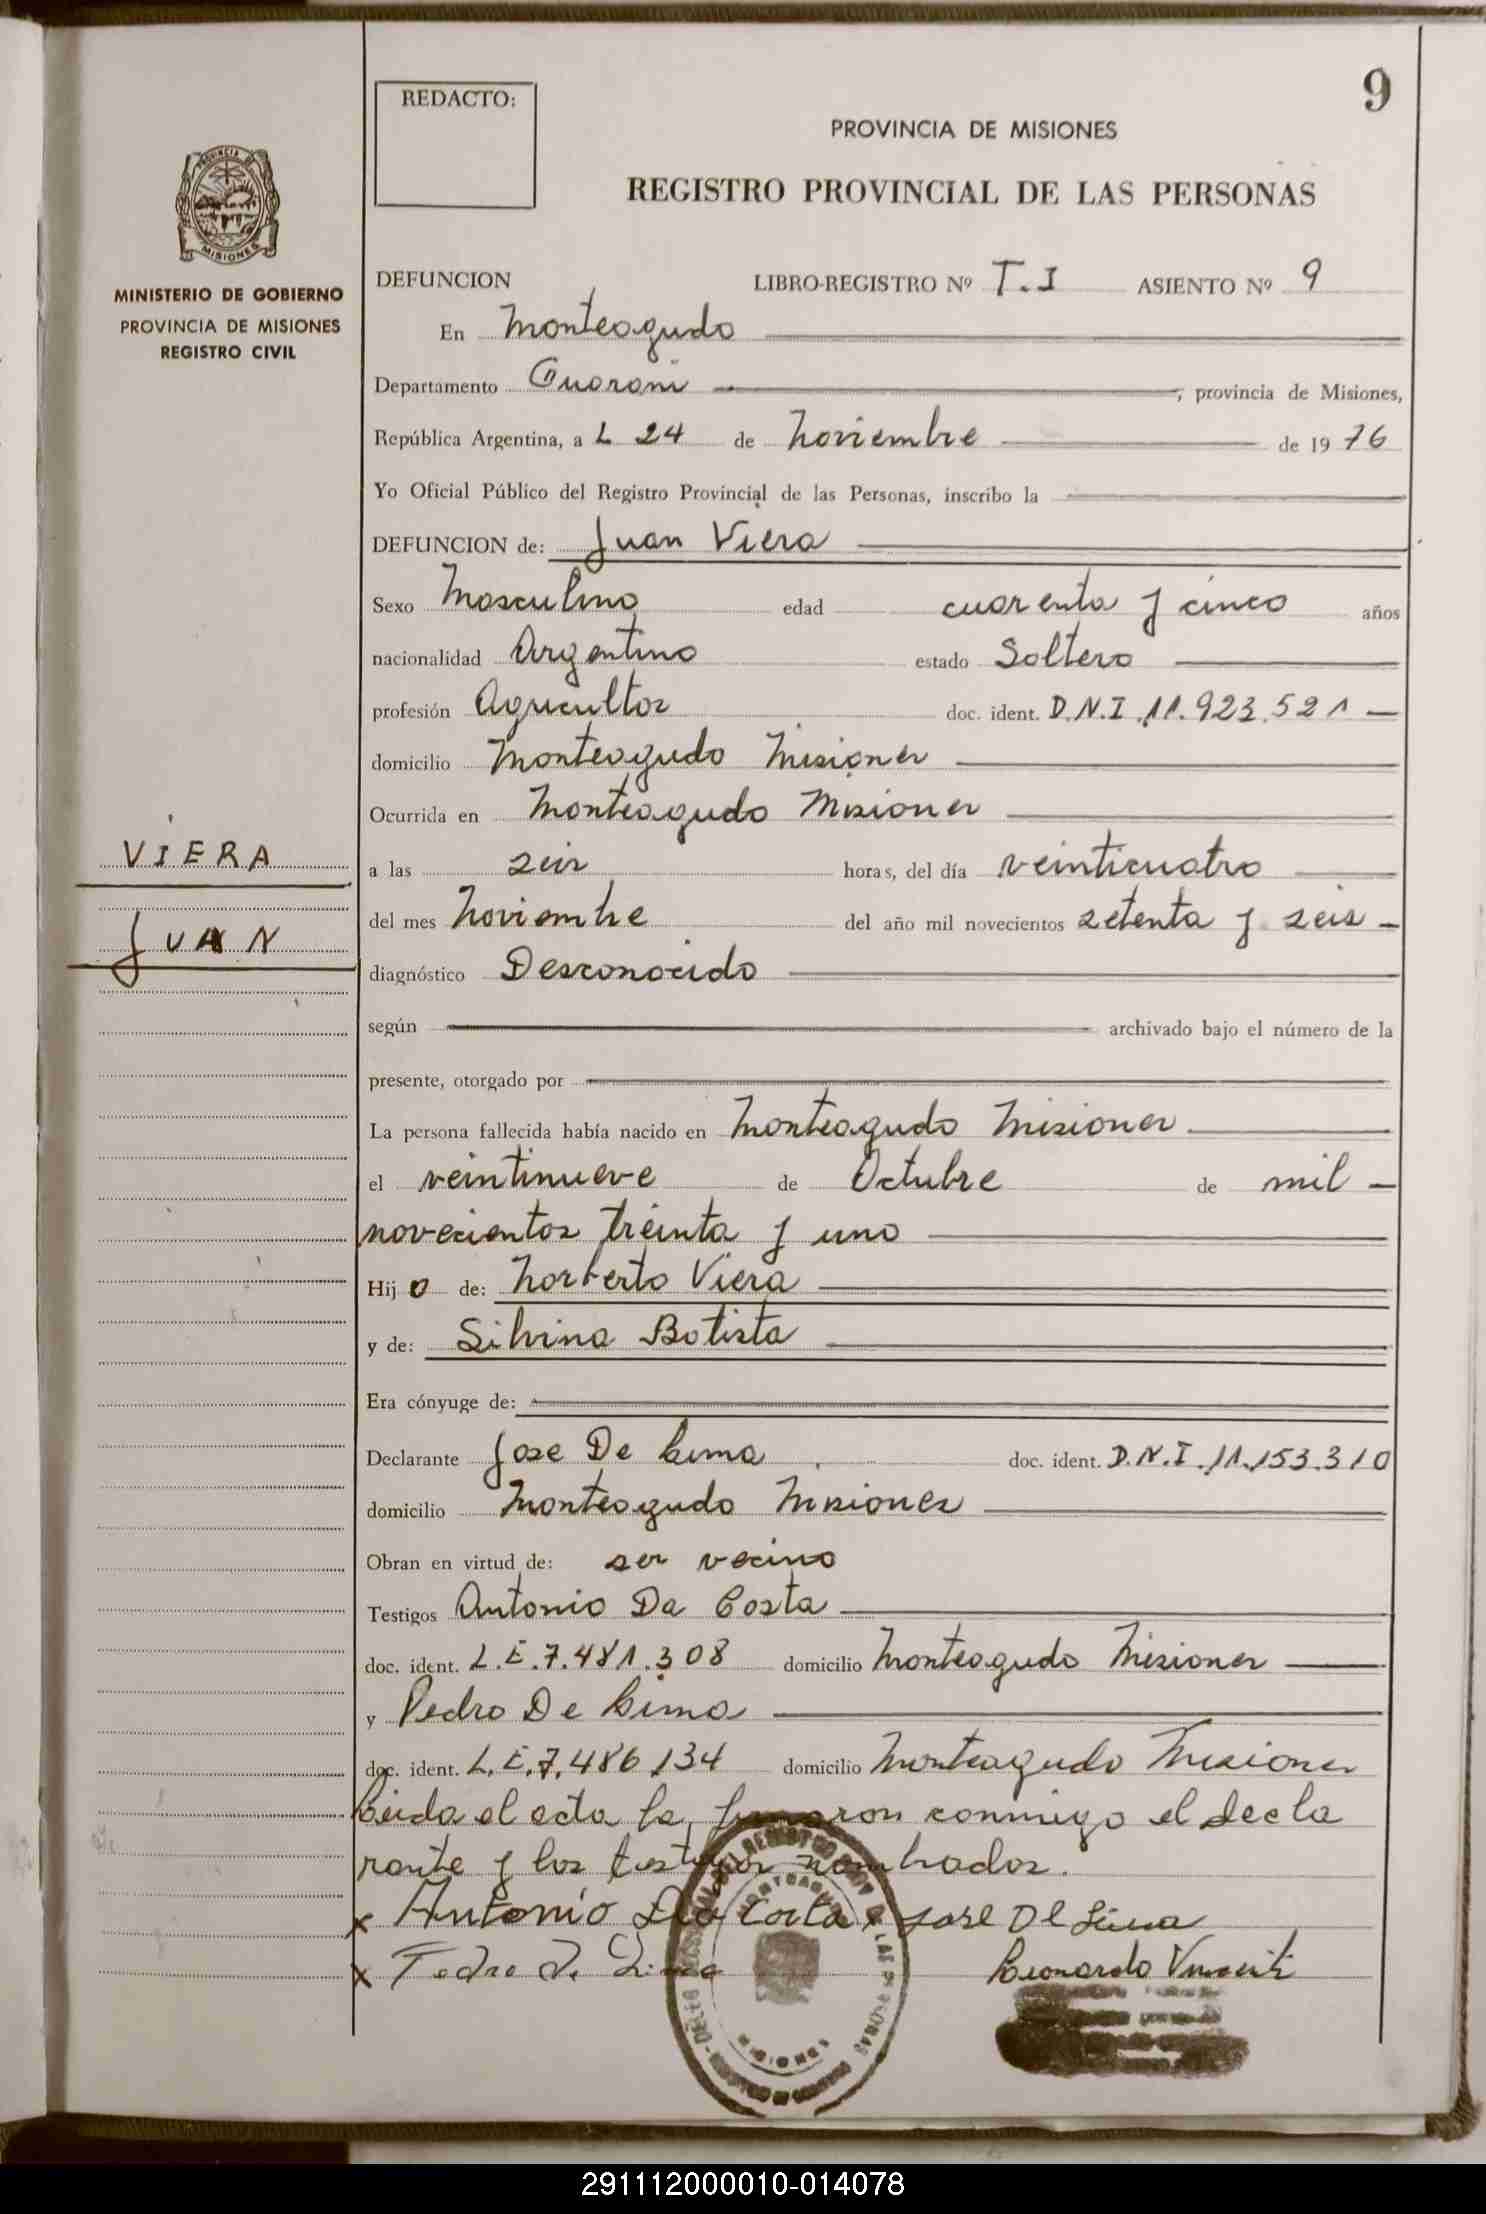 9
REDACTO:
PROVINCIA DE MISIONES
REGISTRO PROVINCIAL DE LAS PERSONAS
PROVINCIA DE
MISIONES
MINISTERIO DE GOBIERNO
PROVINCIA DE MISIONES
REGISTRO CIVIL
DEFUNCION LIBRO-REGISTRO Nº T.I ASIENTO Nº 9
En Monteagudo
Departamento Guarani, provincia de Misiones,
República Argentina, a L 24 de Noviembre de 1976
Yo Oficial Público del Registro Provincial de las Personas, inscribo la
DEFUNCION de: Juan Viera
Sexo Masculino edad cuarenta y cinco años
nacionalidad Argentino estado Soltero
profesión Agricultor doc. ident. D.N.I. 11.923.521
domicilio Monteagudo Misiones
Ocurrida en Monteagudo Misiones
VIERA
JUAN
a las seis horas, del día veinticuatro
del mes Noviembre del año mil novecientos setenta y seis
diagnóstico Desconocido
según archivado bajo el número de la
presente, otorgado por
La persona fallecida había nacido en Monteagudo Misiones
el veintinueve de Octubre de mil
novecientos treinta y uno
Hijo de: Norberto Viera
y de: Silvina Botista
Era cónyuge de:
Declarante Jose De Lima doc. ident. D.N.I. 11.153.310
domicilio Monteagudo Misiones
Obran en virtud de: ser vecino
Testigos Antonio Da Costa
doc. ident. L.E.7.481.308 domicilio Monteagudo Misiones
y Pedro De Lima
doc. ident. L.E.7.486.134 domicilio Monteagudo Misiones
Leida el acta la firmaron conmigo el decla
rante y los testigos nombrados.
x Antonio Da Costa x Jose De Lima
x Pedro De Lima Leonardo
291112000010-014078